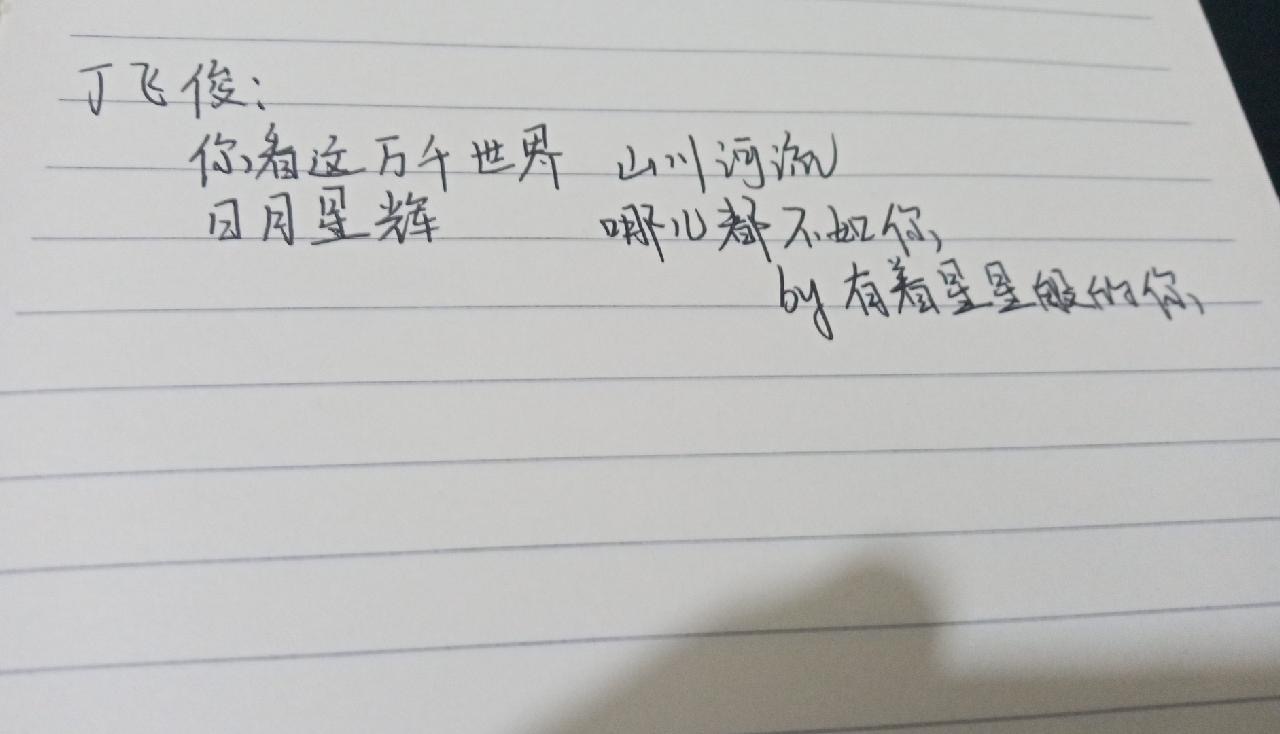 丁飞俊:
你看这万千世界 山川河流
日月星辉 哪儿都不如你,
by 有着星星般的你,